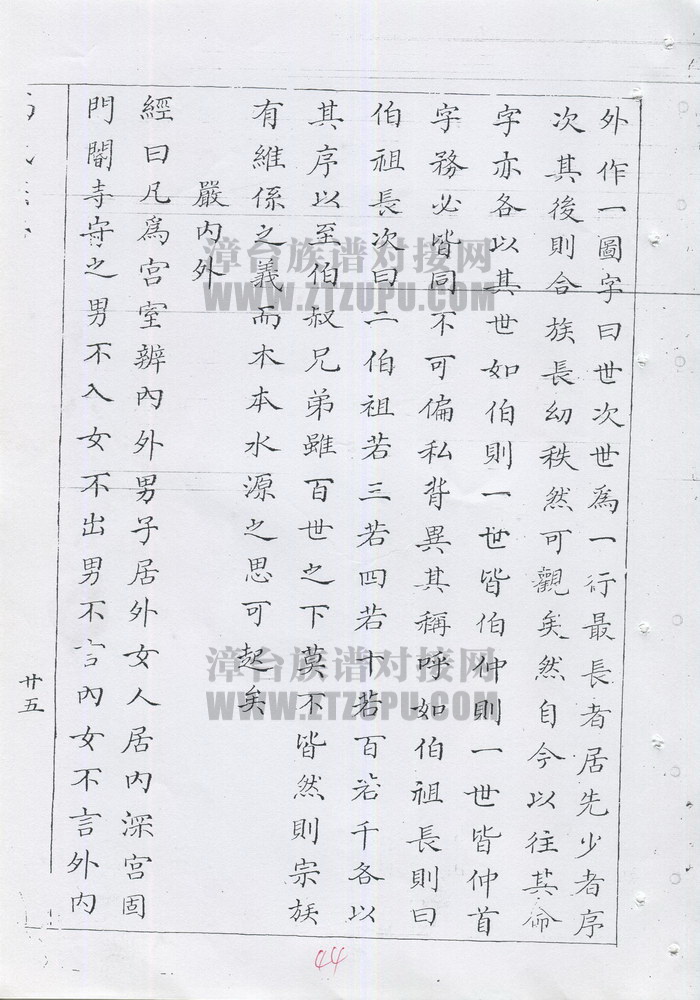 外作一圖字曰世次世爲一行最長者居先少者序
次其後則合族長幼秩然可觀矣然自今以往其命
字亦各以其世如伯則一世皆伯仲則一世皆仲首
字務必皆同不可偏私背異其稱呼如伯祖長則曰
伯祖長次曰二伯祖若三若四若十若百若千各以
其序以至伯叔兄弟雖百世之下莫不皆然則宗族
有維係之義而木本水源之思可起矣
嚴内外
經曰凡爲宮室辨內外男子居外女人居内深宮固
門閽寺守之男不入女不出男不言內女不言外内
廿五
44
漳台族谱对接网
WWW.ZTZUPU.COM
漳台族谱对接网
WWW.ZTZUPU.COM